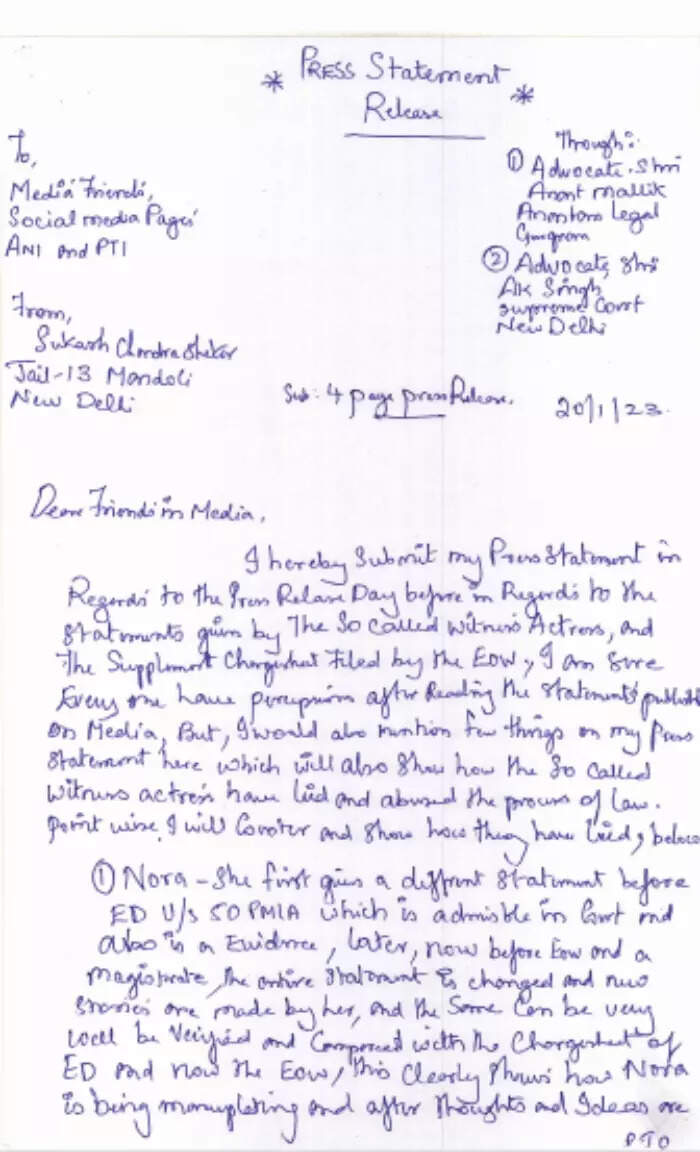 * PRESS Statement *
Release
To,
Media Friends,
Social media Pages
ANI and PTI
Through:
① Advocate. Shri
Anant Mallik
Legal
② Advocate, Shri
AK Singh
Supreme Court
New Delhi
From,
Sukash Chandra Shekar
Jail-13 Mandoli
New Delhi
Sub: 4 page press Release.
20/1/23.
Dear Friends in Media,
I hereby Submit my Press Statement in
Regards to the Press Relase Day before in Regards to the
Statements given by The So Called witness Actress, and
The Supplement Chargesheet Filed by the EOW, I am Sure
Every one have perception after Reading the Statements
On Media, But, I would also mention few things on my Press
Statement here which will also Show how the So Called
Witness actress have lied and abused the process of law.
Point wise I will Counter and Show how they have lied, below
① Nora - She first gives a diffrent Statement before
ED U/s 50 PMLA which is admisble in Court and
also is a Evidence, later, now before Eow and a
Magistrate, the entire statement is changed and new
Stories are made by her, and the Same Can be very
well be Verified and Compared with the Chargesheet of
ED and now the Eow, this Clearly Shows how Nora
is being and after thoughts and Ideas are
PTO